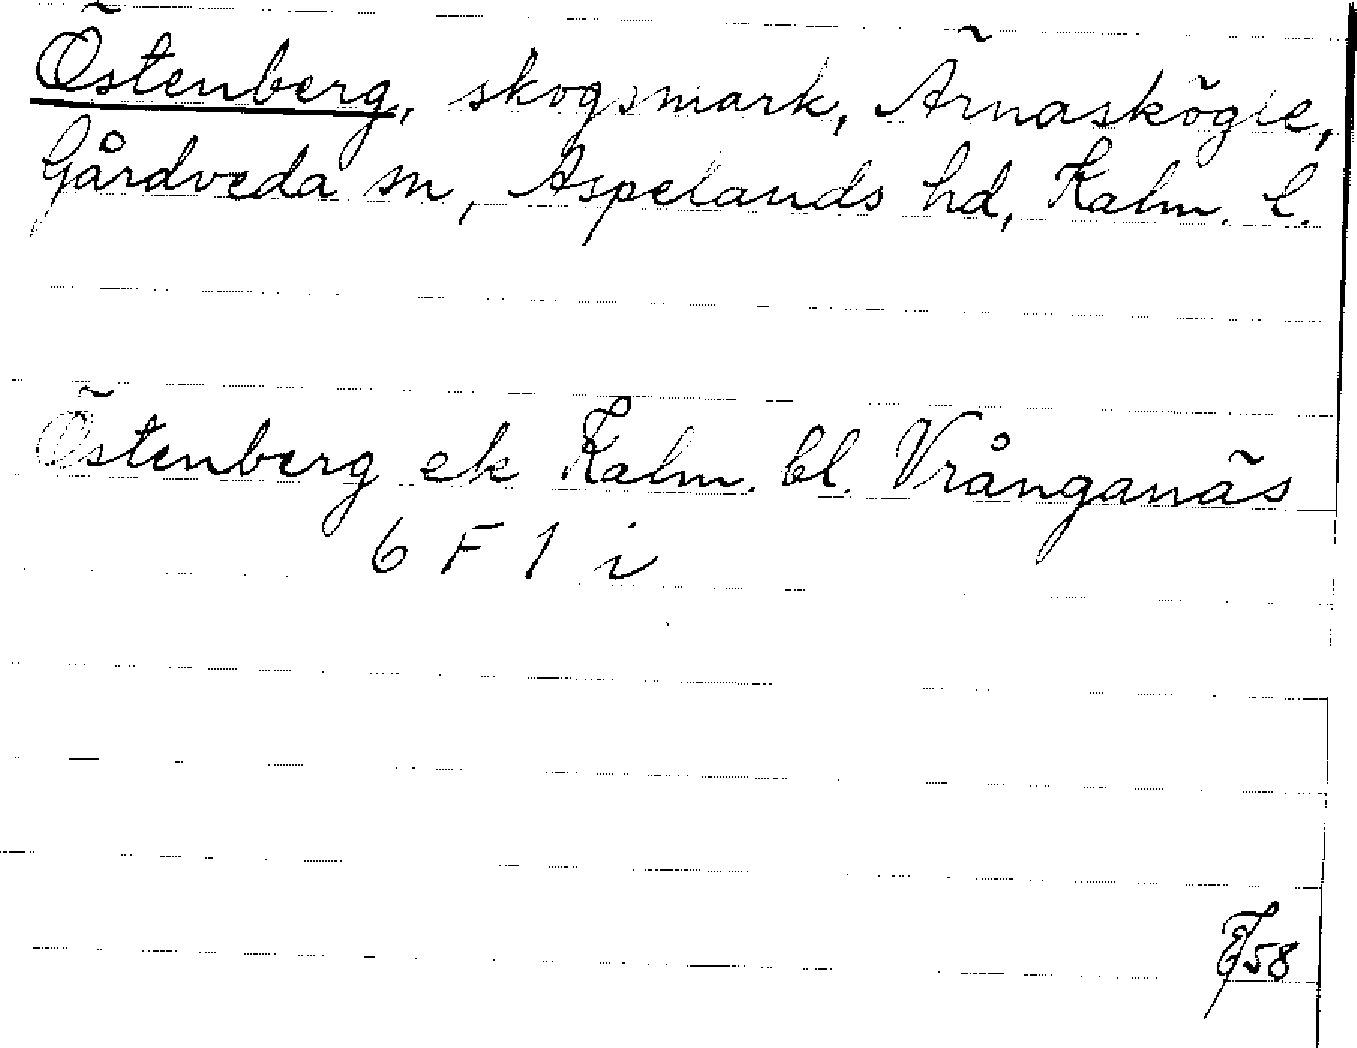 Östenberg, skogsmark, Ärnaskögle,
Gårdveda sn, Aspelands hd, Kalm. l.
Östenberg ek Kalm. bl. Vrånganäs
6 F 1 i
58